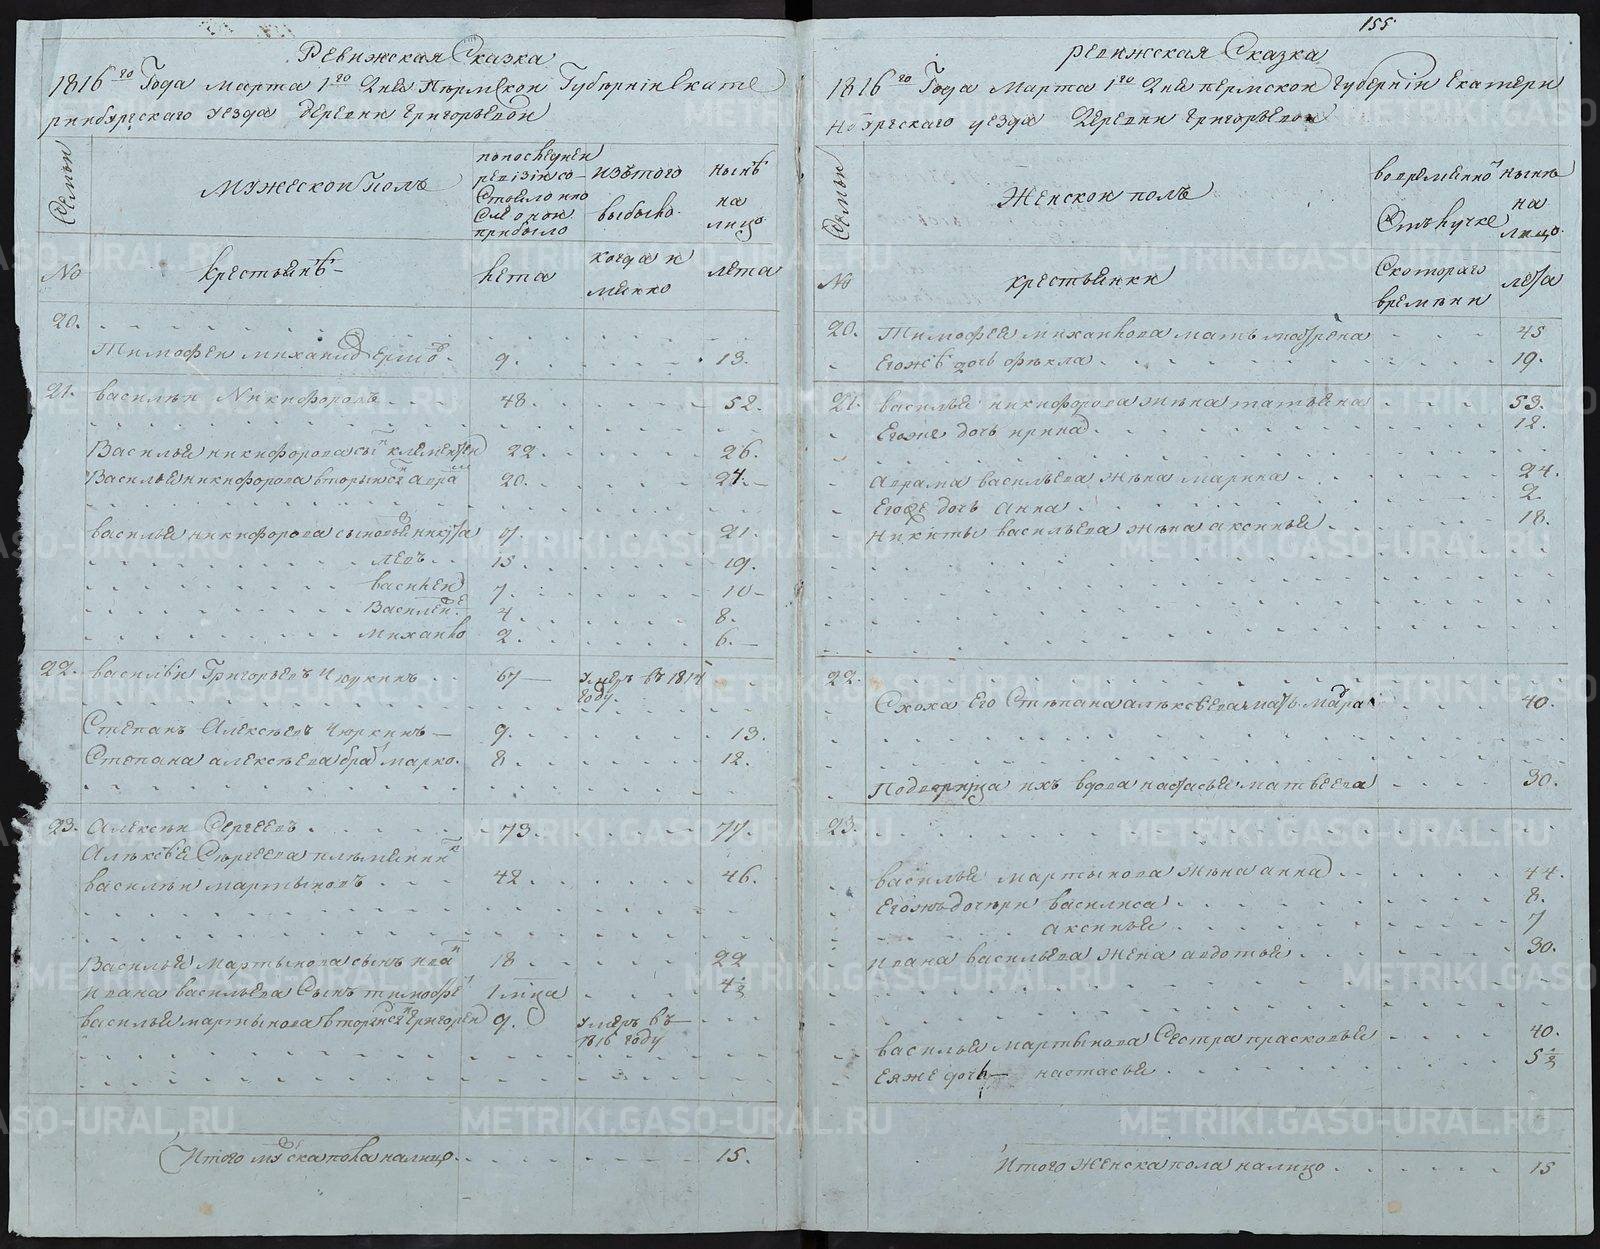 Ревижская Сказка
1816го Года марта 1го Дня Пермской Губернии Екате
ринбургского уезда деревни Григорьевой
Семьи
Мужеской полъ
по последней ревизии со-
стояло и по
оной
прибыло
изъ того
выбыло
ныне
на
лицо
No
крестьяне
лета
когда и
лета
20.
Тимофей михаилов 9. 13.
21. василей Никифоровъ 48. 52.
Василья никифорова сын клементей 22. 26.
Василья никифорова вторый сын авра 20. 24.
василья никифорова сыновья никита 21.
левъ 15 19.
василей 7. 10
Василей 4 8.
михаило 2. 6.
22. василей Григорьевъ Чюркинъ 67 умеръ въ 1814
году.
Степанъ Алексеевъ Чюркинъ 9. 13.
Степана алексеева брат марко. 8. 12.
23. Алексей Сергеевъ 73. 77.
Алексея Сергеева племянник
василей мартыновъ 42. 46.
Василья Мартынова сынъ иван 18 22
Ивана васильева Сынъ тимофей 1 мца 4½
василья мартынова вторый сын григорей 9. умеръ въ
1816 году
Итого муска пола налицо. 15.
155
ревижская Сказка
1816го Года Марта 1го Дня пермской губернии Екатери
нбургскаго уезда Деревни григорьевой
Семьи
Женской полъ
во временной
отлучке
ныне
на
лицо
No
крестьянки
С котораго
времени
лета
20. Тимофея михайлова мать матрена 45
Егожъ дочь фекла 19.
21. василья никифорова жена татьяна 53.
Егоже дочь ирина 12.
Аврама васильева жена марина 24.
Егоже дочь Анна 2
Никиты васильева жена аксинья 18.
22.
Сноха Его Степана алексеева мать 40.
Подворница ихъ вдова настасья матвеева 30.
23.
василья мартынова жена анна 44.
Егожъ дочери василиса 8.
аксинья 7
Ивана васильева Жена авдотья 30.
василья Мартынова Сестра прасковья 40.
Еяже дочь настасья 5½
Итого Женска пола налицо 15
METRIKI.GASO-URAL.RU